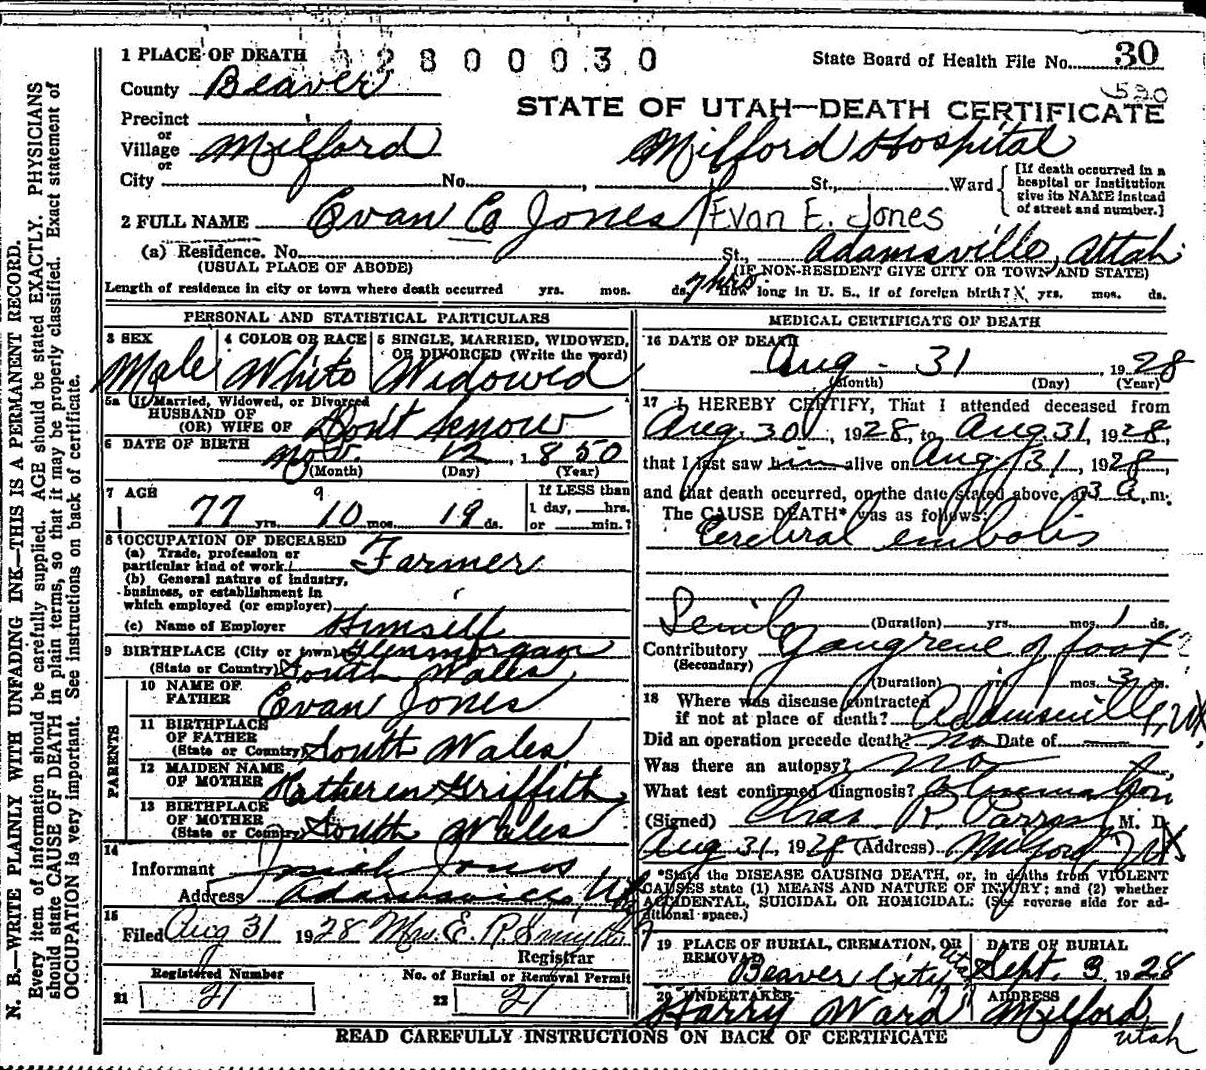 1 PLACE OF DEATH 0 2 8 0 0 0 3 0 State Board of Health File No. 30
County Beaver 530
STATE OF UTAH—DEATH CERTIFICATE
Precinct
or
Village Milford Milford Hospital
or
City No. , St., Ward [If death occurred in a hospital or institution give its NAME instead of street and number.]
2 FULL NAME Evan E Jones / Evan E. Jones
(a) Residence. No. St., Adamsville, Utah
(USUAL PLACE OF ABODE) (IF NON-RESIDENT GIVE CITY OR TOWN AND STATE)
Length of residence in city or town where death occurred yrs. mos. ds. 7 hrs. How long in U. S., if of foreign birth? yrs. mos. ds.
PERSONAL AND STATISTICAL PARTICULARS
3 SEX 4 COLOR OR RACE 5 SINGLE, MARRIED, WIDOWED,
OR DIVORCED (Write the word)
Male White Widowed
5a If Married, Widowed, or Divorced
HUSBAND OF
(OR) WIFE OF Don't know
6 DATE OF BIRTH Nov. 12, 1850
(Month) (Day) (Year)
7 AGE 9 If LESS than
1 day, hrs.
77 yrs. 10 mos. 19 ds. or min.?
8 OCCUPATION OF DECEASED
(a) Trade, profession or
particular kind of work Farmer
(b) General nature of industry,
business, or establishment in
which employed (or employer)
(c) Name of Employer Himself
9 BIRTHPLACE (City or town) Glenmorgan
(State or Country) South Wales
PARENTS
10 NAME OF
FATHER Evan Jones
11 BIRTHPLACE
OF FATHER
(State or Country) South Wales
12 MAIDEN NAME
OF MOTHER Katheren Griffith
13 BIRTHPLACE
OF MOTHER
(State or Country) South Wales
14
Informant Jones
Address Adamsville, Ut
15
Filed Aug 31 1928 Mrs. E. R. Smyth
Registrar
Registered Number No. of Burial or Removal Permit
21 21 22 21
MEDICAL CERTIFICATE OF DEATH
16 DATE OF DEATH
Aug - 31, 1928
(Month) (Day) (Year)
17 I HEREBY CERTIFY, That I attended deceased from
Aug. 30, 1928, to Aug. 31, 1928,
that I last saw him alive on Aug. 31, 1928,
and that death occurred, on the date stated above, at 3 a. m.
The CAUSE DEATH* was as follows:
Cerebral embolis
(Duration) yrs. mos. 1 ds.
Contributory Senile Gangrene of foot
(Secondary)
(Duration) yrs. mos. 3 ds.
18 Where was disease contracted
if not at place of death? Adamsville, Ut.
Did an operation precede death? No Date of
Was there an autopsy? No
What test confirmed diagnosis?
(Signed) Chas R Parrish, M. D.
Aug 31, 1928 (Address) Milford, Ut
*State the DISEASE CAUSING DEATH, or, in deaths from VIOLENT
CAUSES state (1) MEANS AND NATURE OF INJURY; and (2) whether
ACCIDENTAL, SUICIDAL OR HOMICIDAL. (See reverse side for ad-
ditional space.)
19 PLACE OF BURIAL, CREMATION, OR DATE OF BURIAL
REMOVAL
Beaver City Utah Sept. 3 1928
20 UNDERTAKER ADDRESS
Harry Ward Milford
Utah
READ CAREFULLY INSTRUCTIONS ON BACK OF CERTIFICATE
N. B.—WRITE PLAINLY WITH UNFADING INK—THIS IS A PERMANENT RECORD.
Every item of information should be carefully supplied. AGE should be stated EXACTLY. PHYSICIANS
should state CAUSE OF DEATH in plain terms, so that it may be properly classified. Exact statement of
OCCUPATION is very important. See instructions on back of certificate.